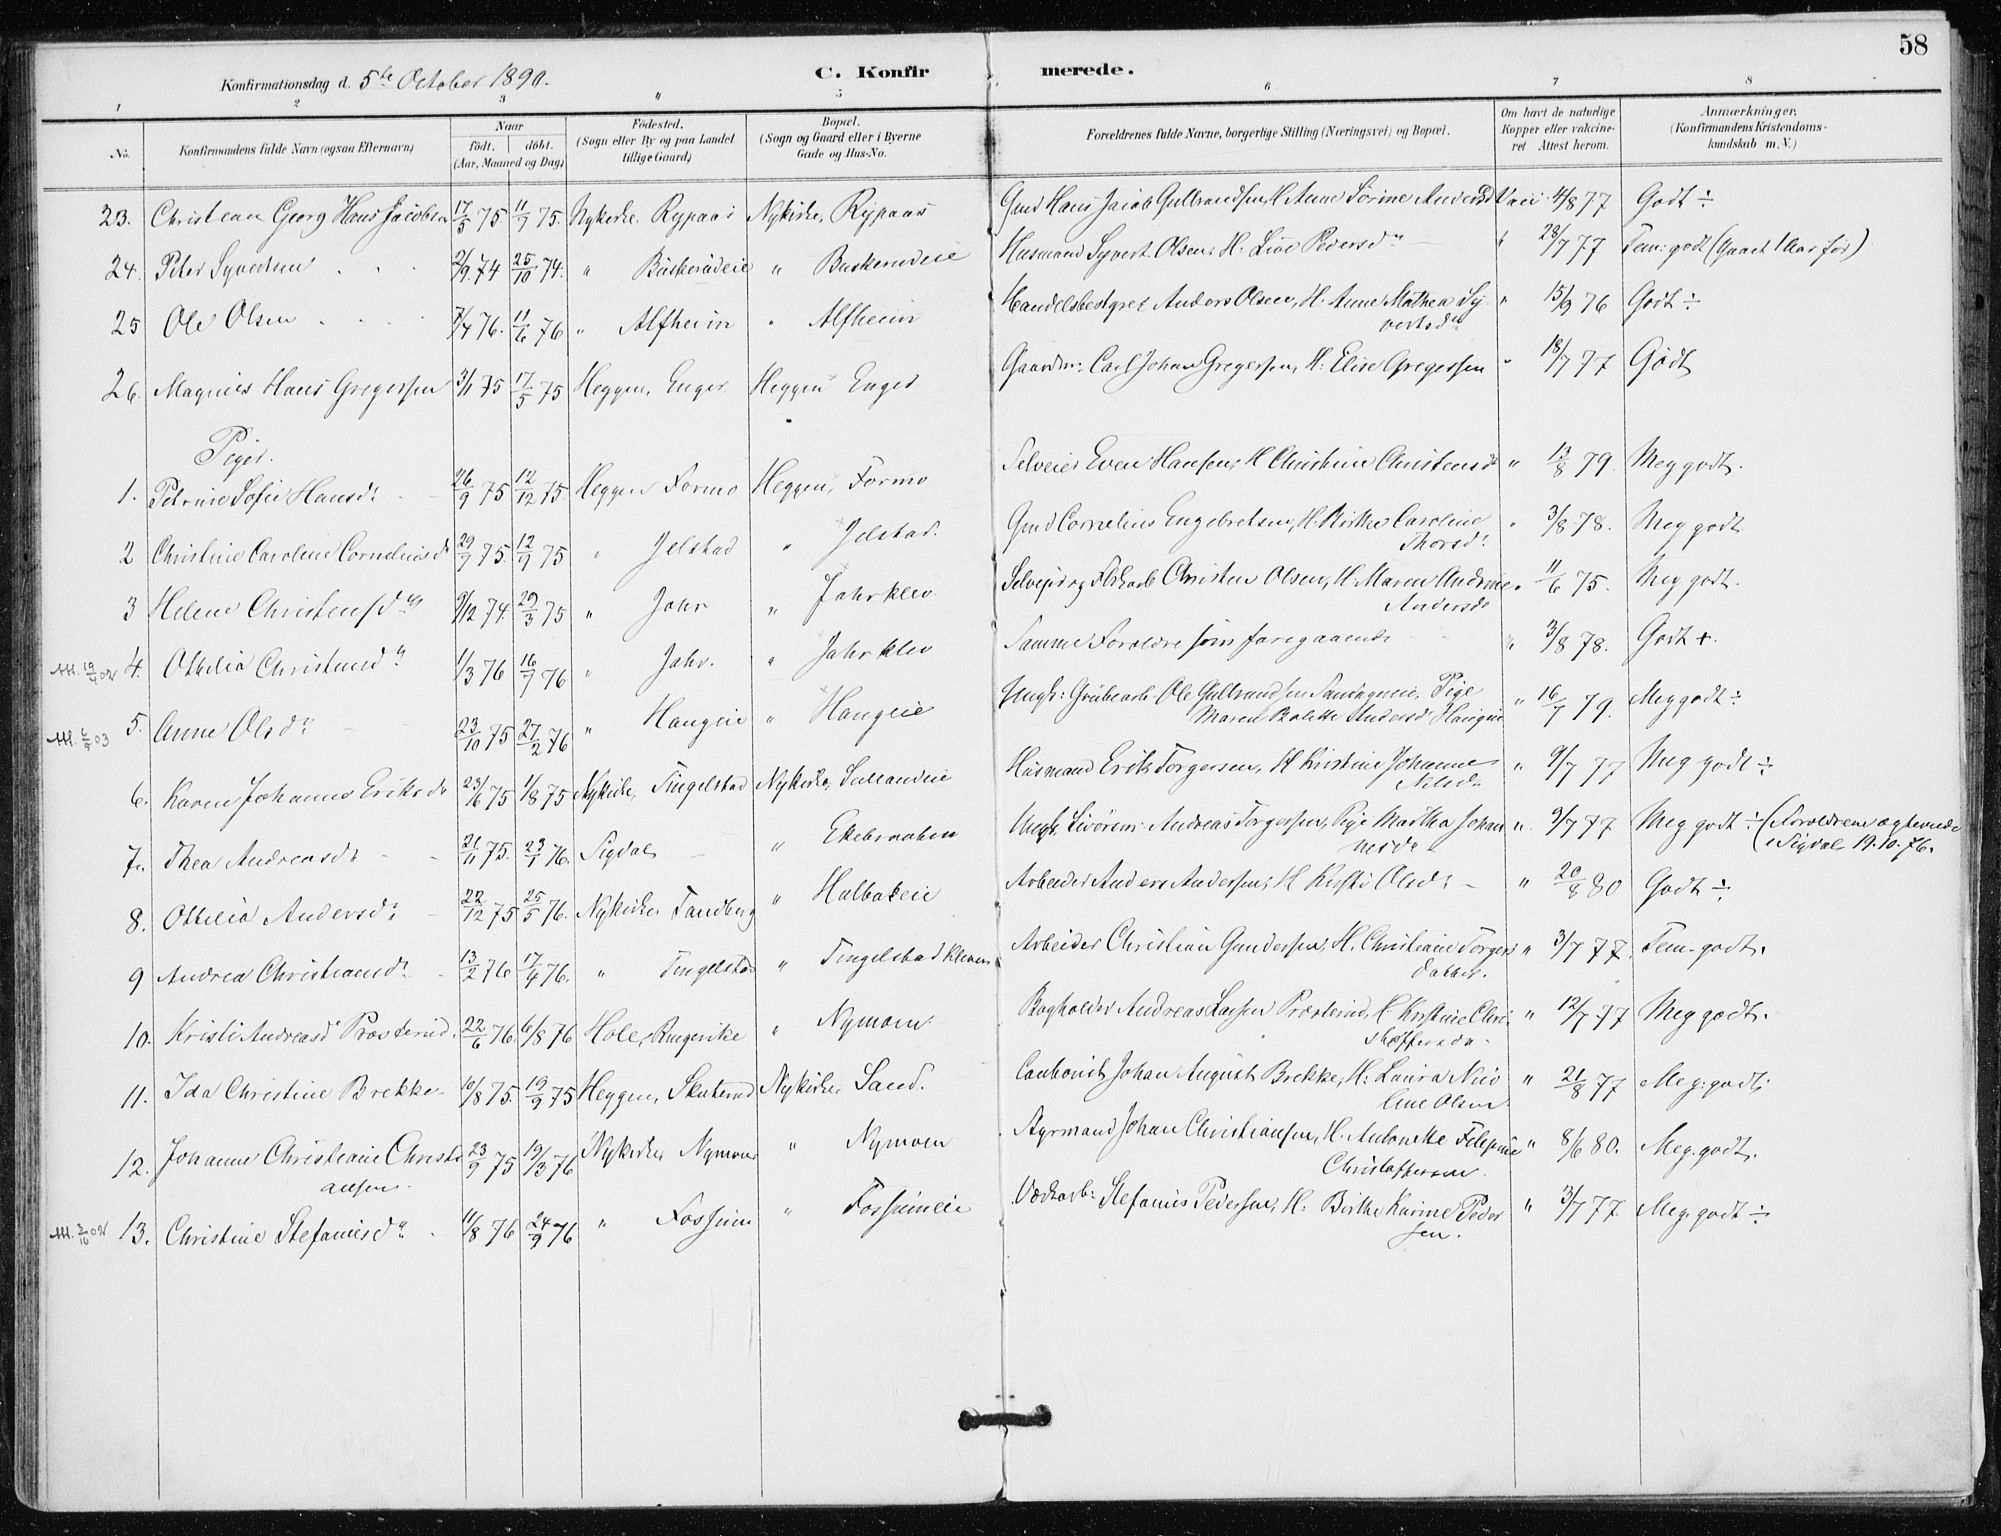 58
Konfirmationsdag d. 5te October 1890.
C. Konfirmerede.
1 2 3 " 5 6 7 8
No. Konfirmandens fulde Navn (ogsaa Efternavn) Naar födt. döbt. (Aar, Maaned og Dag) Födested. (Sogn eller By og paa Landet tillige Gaard) Bopæl. (Sogn og Gaard eller i Byerne Gade og Hus-No. Forældrenes fulde Navne, borgerlige Stilling (Næringsvei) og Bopæl. Om havt de naturlige Kopper eller vakcineret Attest herom. Anmærkninger. (Konfirmandens Kristendomskundskab m. V.)
23. Christian Georg Hans Jacobsen 17/5 75 11/7 75. Nykirke, Rypaas Nykirke, Rypaas Gmd Hans Jacob Gulbrandsen, H. Anne Sörine Andersd Vacc 4/8 77 Godt ÷
24. Peter Syvertsen 2/9 74 25/10 74. " Buskerudeie " Buskerudeie Husmand Syvert Olsen, H. Live Pedersd " 28/7 77 Tem: godt (Gaaet 1 Aar för)
25 Ole Olsen 7/4 76. 11/6 76 " Alfheim " Alfheim Handelsbestyrer Anders Olsen, H. Anne Mathea Syvertsdr " 15/9 76 Godt ÷
26. Magnus Hans Gregersen 3/11 75 17/5 75 Heggen, Enger Heggen Enger Gaardm: Carl Johan Gregersen, H: Elise Gregersen " 18/7 77 Godt
Piger.
1. Petrine Sofie Hansdr 26/9 75 12/12 75. Heggen Formo Heggen, Formo Selveier Even Hansen, H Christine Christensd " 13/8 79. Meg godt.
2 Christine Caroline Corneliusdr 29/7 75. 12/9 75 " Jelstad " Jelstad. Gmd Cornelius Engebretsen, H. Birthe Caroline Thorsdr " 3/8 78. Meg godt
3 Helene Christensdr 9/12 74. 29/3 75 " Jahr " Jahrklev Selveier og Christen Olsen, H. Maren Andrine Andersdr " 11/6 75. Meg godt.
4. Othilia Christensdr 1/3 76 16/7 76 " Jahr. " Jahrklev Samme Foreldre som foregaaende " 3/8 78. Godt +.
5. Anne Olsdr 23/10 75 27/2 76 " Haugeie " Haugeie Ungk: Grubearb. Ole Gulbrandsen, Pige Maren Bolette Andersd Haugeie " 16/7 79. Meg godt ÷
6. Karen Johanne Eriksdr 23/6 75 1/8 75 Nykirke, Tingelstad Nykirke, Husmand Erik Torgersen, H Kristine Johanne Nilsdr " 9/7 77 Meg godt ÷
7. Thea Andreasdr 21/11 75. 23/1 76. Sigdal " Ekebraaten Ungk. Andreas Torgersen, Pige Martha Johannesdr " 9/7 77 Meg godt ÷ (Foreldrene ægteviede i Sigdal 19.10.76.
8. Othilia Andersdr 22/12 75 25/5 76. Nykirke Tandberg " Holbakeie Arbeider Anders Andersen, H Olsdr " 20/8 80 Godt ÷
9 Andrea Christiansdr 13/2 76 17/4 76. " Tingelstad " Tingelstadkleven Arbeider Christian Gundersen, H. Christiane Torgersdatter. " 3/7 77. Tem. godt.
10. Kristi Andreasd Præsterud 22/6 76. 6/8 76 Hole, Ringerike " Nymoen Bogholder Andreas Larsen Præsterud, H Kristine Christoffersdr " 12/7 77 Meg godt.
11. Ida Christine Brekke 10/8 75. 19/9 75 Heggen, Skuterud Nykirke Sand. Johan August Brekke, H: Laura Nicoline Olsen " 21/8 77 Meg: godt.
12. Johanne Christiane Christiansen 23/9 75 19/3 76 Nykirke Nymoen " Nymoen Styrmand Johan Christiansen, H. Antonette Filipine Christoffersen " 8/6 80. Meg. godt.
13. Christine Stefanusdr 11/8 76 24/9 76 " Fossum " Fossumeie Stefanus Pedersen, H: Birthe Karine Pedersen. " 3/7 77. Meg. godt ÷